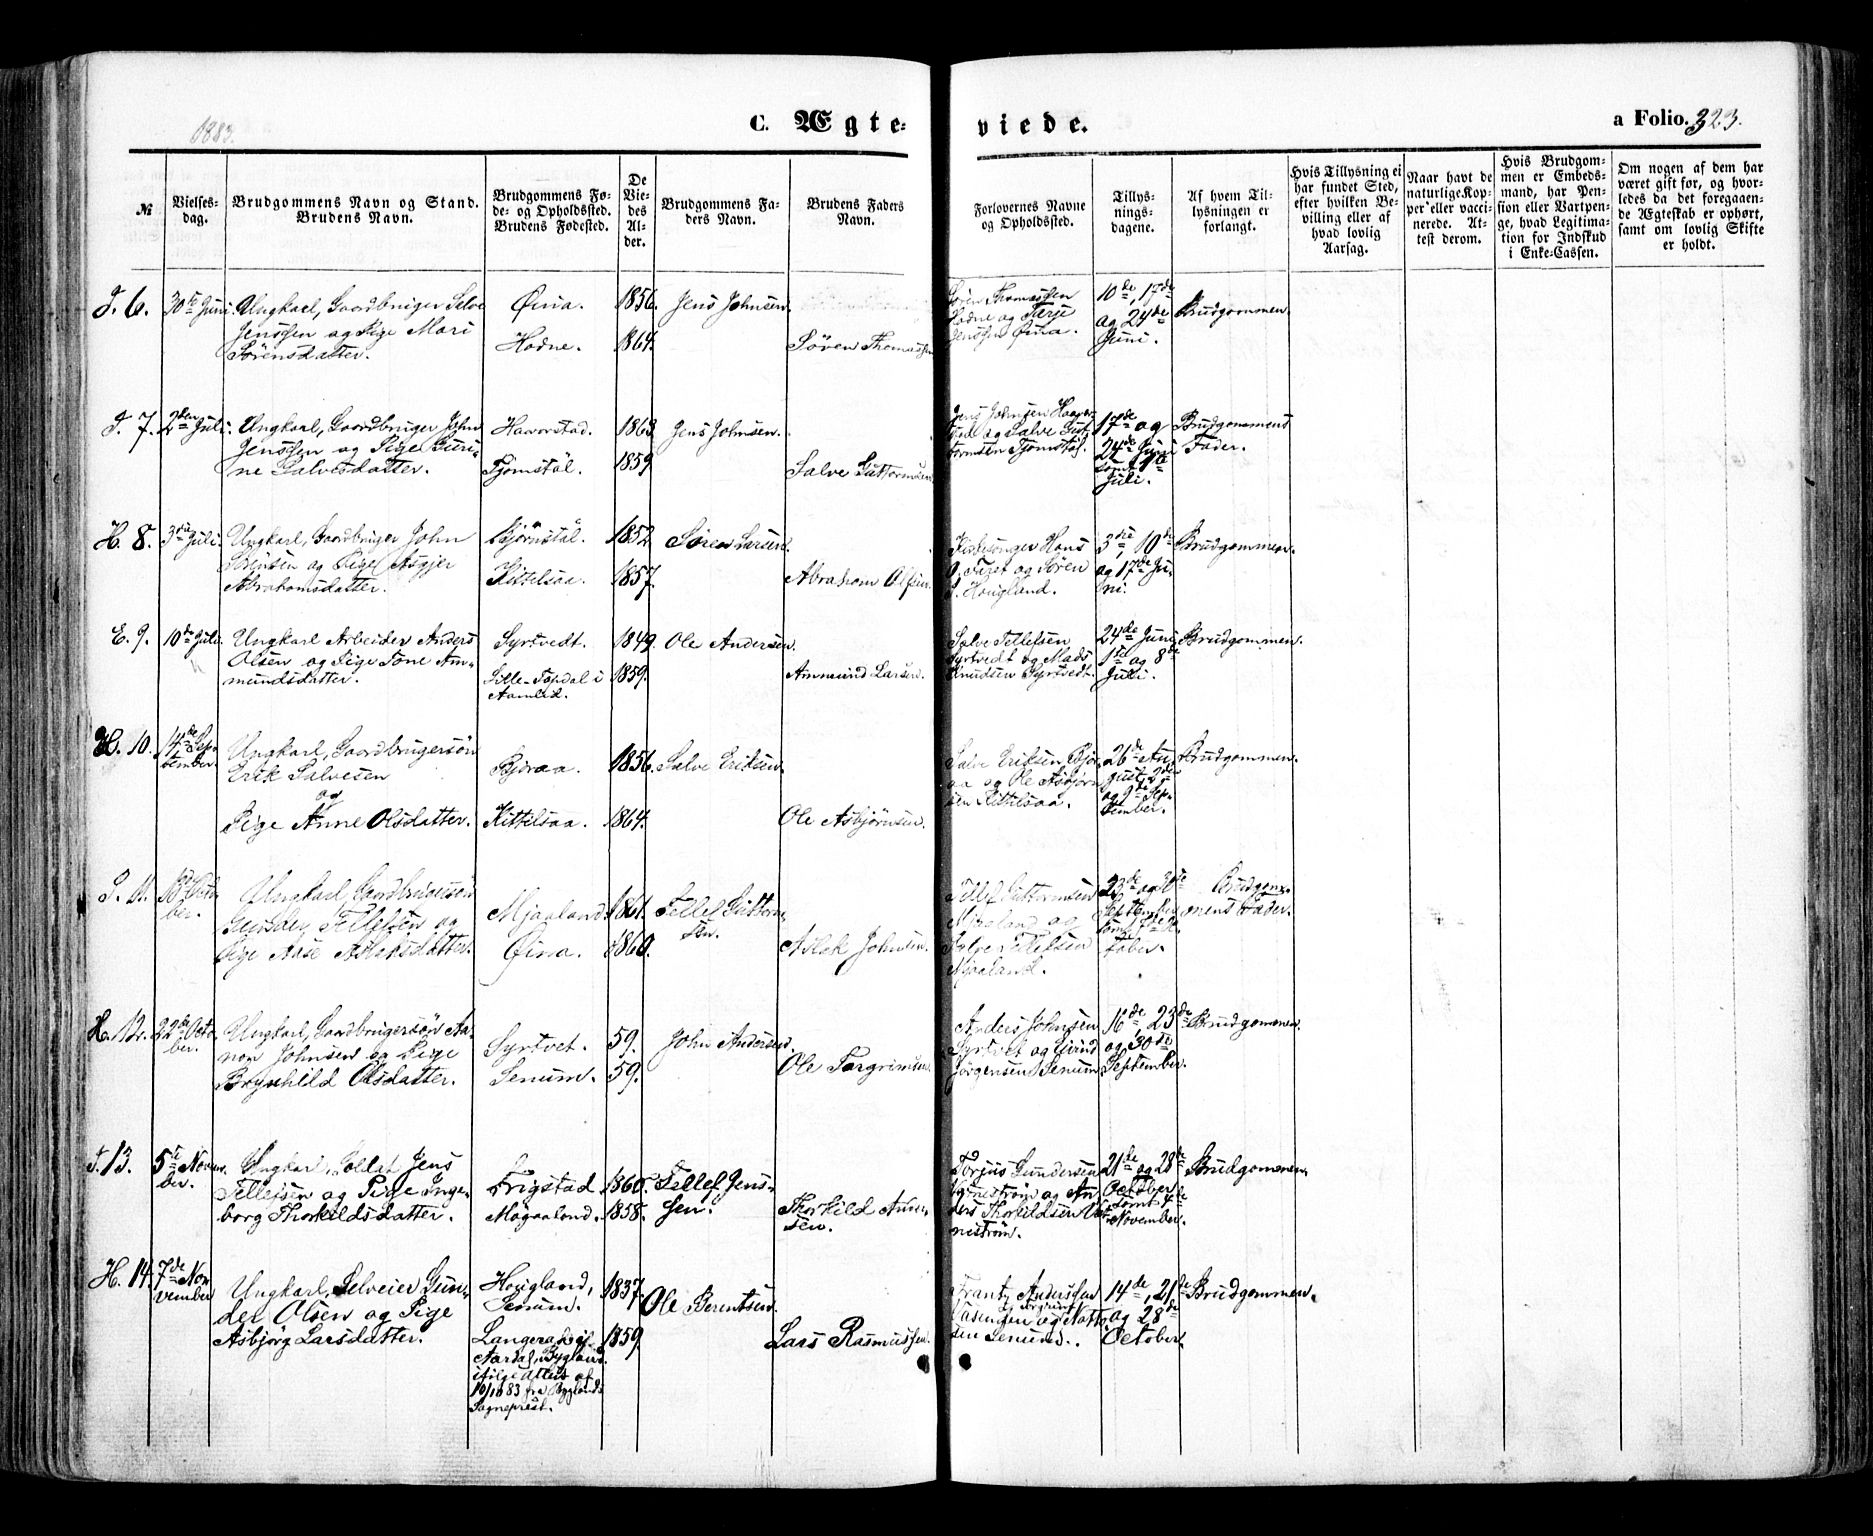 1883.
C. Ægte-
viede.
a Folio. 323.
№
Vielses-
dag.
Brudgommens Navn og Stand.
Brudens Navn.
Brudgommens Fø-
de- og Opholdssted.
Brudens Fødested.
De
Vie-
des
Al-
der.
Brudgommens Fa-
ders Navn.
Brudens Faders
Navn.
Forlovernes Navne
og Opholdssted.
Tillys-
nings-
dagene.
Af hvem Til-
lysningen er
forlangt.
Hvis Tillysning ei
har fundet Sted,
efter hvilken Be-
villing eller af
hvad lovlig
Aarsag.
Naar havt de
naturlige Kop-
per eller vacci-
nerede. At-
test derom.
Hvis Brudgom-
men er Embeds-
mand, har Pen-
sion eller Vartpen-
ge, hvad Legitima-
tion for Indskud
i Enke-Cassen.
Om nogen af dem har
været gift før, og hvor-
ledes da det foregaaen-
de Ægteskab er ophørt,
samt om lovlig Skifte
er holdt.
6. 30te Juni. Ungkarl, Gaardbruger Salve
Jenssen og Pige Mari
Sörensdatter.
Øina.
Hodne.
1856.
1864.
Jens Johnsen.
Sören Thomassen
Sören Thomassen
Hodne og Terje
Jenssen Øina.
10de, 17de
og 24de
Juni.
Brudgommen.
7. 2den Juli. Ungkarl, Gaardbruger John
Jenssen og Pige Guri-
ne Salvesdatter.
Haverstad.
Tjomstöl.
1863
1859
Jens Johnsen.
Salve Guttormsen
Jens Johnsen Haver-
stad og Salve Gut-
tormsen Tjomstöl.
17de og
24de Juni
samt 1te
Juli.
Brudgommens
Fader.
H. 8. 3die Juli. Ungkarl, Gaardbruger John
Sörensen og Pige Asgjer
Abrahamsdatter.
Bjørnstöl.
Kittelsaa.
1852
1857.
Sören Larsen.
Abraham Olsen.
Kirkesanger Hans
O. Tveit og Sören
Hougland.
3die, 10de
og 17de Ju-
ni.
Brudgommen.
E. 9. 10de Juli. Ungkarl Arbeider Anders
Olsen og Pige Tone Am-
mundsdatter.
Syrtvedt.
Lille-Topdal i
Aamlid.
1849
1859.
Ole Andersen.
Ammund Larsen.
Salve Tellefsen
Syrtvedt og Mads
Knudsen Syrtvedt.
24de Juni
1ste og 8de
Juli.
Brudgommen.
H. 10. 14de Sep-
tember. Ungkarl, Gaardbrugersön
Erik Salvesen
og
Pige Anne Olsdatter.
Bjoraa.
Kittelsaa.
1856.
1864.
Salve Eriksen.
Ole Asbjörnsen.
Salve Eriksen Bjor-
aa og Ole Asbjörn-
sen Kittelsaa.
26de Au-
gust, 2de
og 9de Sep-
tember.
Brudgommen.
11. Octo-
ber. Ungkarl, Gaardbrugersön
Tellefsen og
Pige Aase Aslaksdatter.
Mjaaland.
Øina.
1861.
1860.
Tellef Guttorm-
sen.
Aslak Johnsen.
Tellef Guttormsen
Mjaaland og
Tellefsen
Mjaaland.
23de og 30te
September
samt 7de Oc-
tober.
Brudgom-
mens Fader.
H. 12. 22de Octo-
ber. Ungkarl, Gaardbrugersön Aa-
non Johnsen og Pige
Brynhild Olsdatter.
Syrtvet.
Senum.
59.
59.
John Andersen.
Ole Torgrimsen.
Anders Johnsen
Syrtvet og Eivind
Jörgensen Senum.
16de, 23de
og 30te
September.
Brudgommen.
13. 5te Novem-
ber. Ungkarl, Soldat Jens
Tellefsen og Pige Inge-
borg Thorkildsdatter.
Frigstad.
Mogaaland.
1860.
1858.
Tellef Jens-
sen.
Thorkild Ander-
sen.
Torjus Gundersen
og An-
ders Thorkildsen Ve-
neström.
21de og 28de
October
samt 4de
November.
Brudgommen.
H. 14. 7de No-
vember Ungkarl, Selveier Gun-
der Olsen og Pige
Asbjörg Larsdatter.
Hougland,
Senum.
Langerak i
Aardal, Bygland.
ifølge attest af
10/10 83 fra Byglands
Sogneprest.
1837.
1859.
Ole Berentsen.
Lars Rasmussen.
Frantz Anderssen
sen Senum.
14de, 21de
og 28de
October.
Brudgommen.